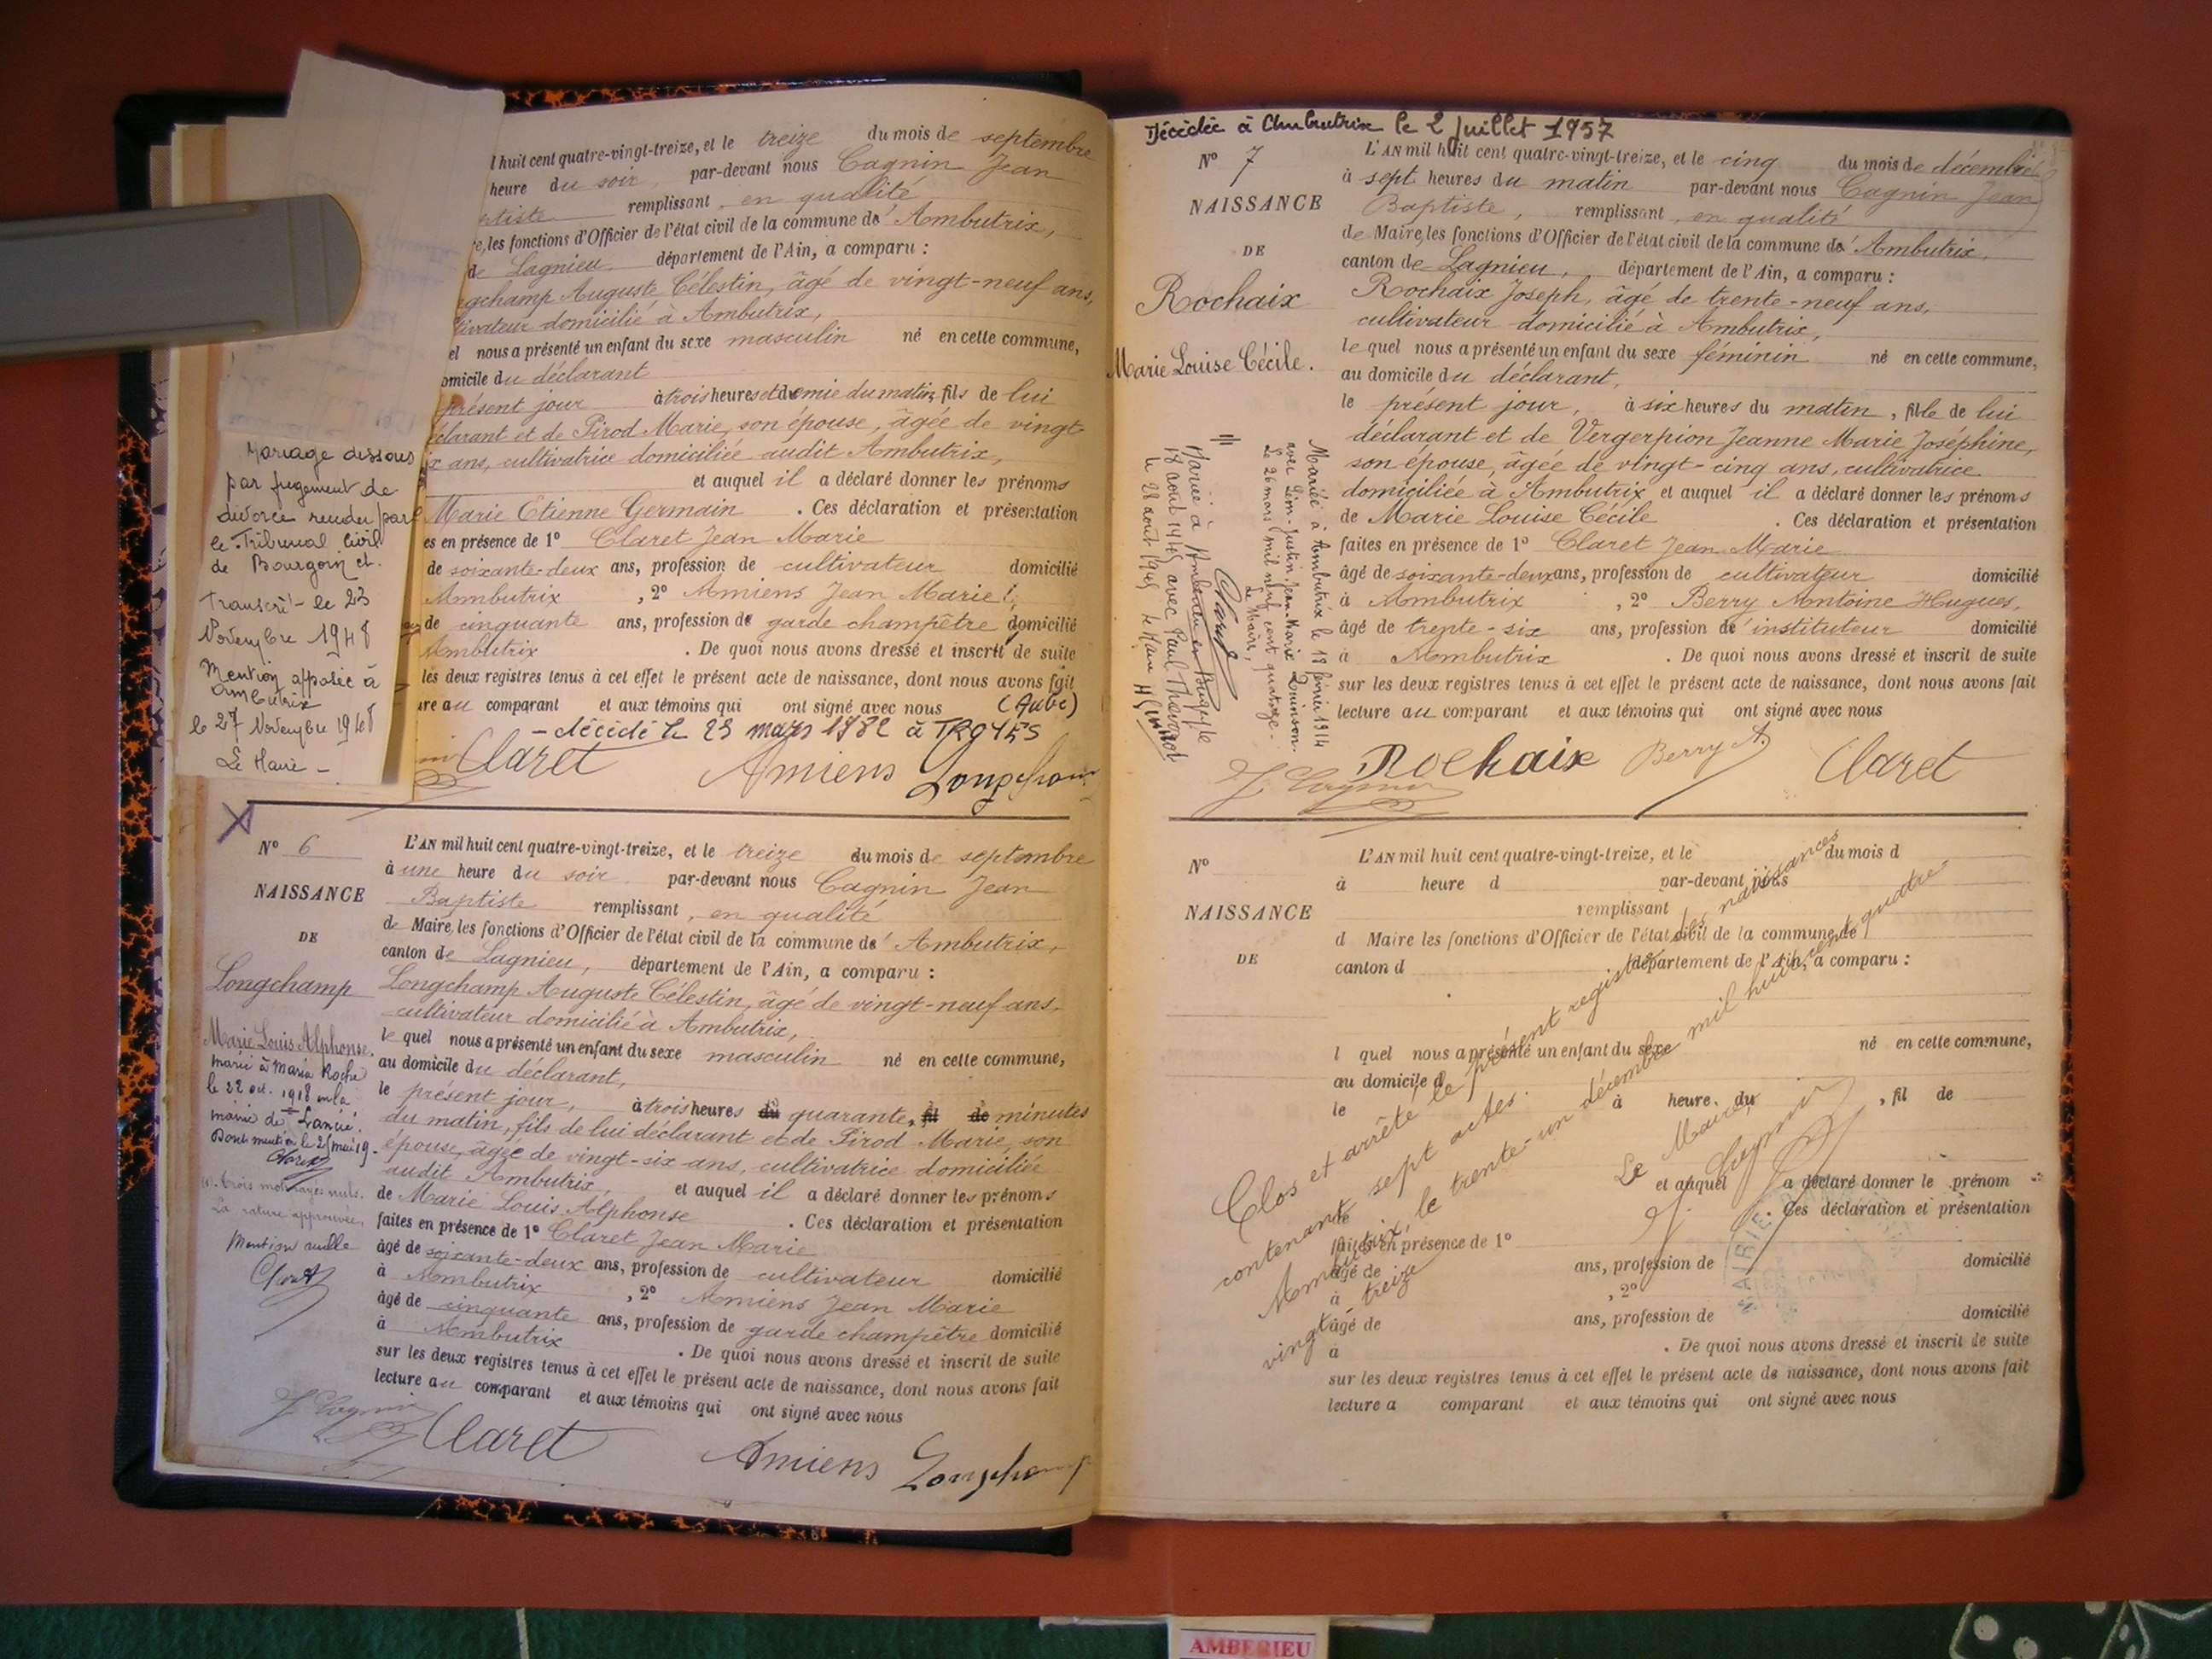 l huit cent quatre-vingt-treize, et le treize du mois de septembre
heure du soir, par-devant nous Cagnin Jean
ptiste remplissant, en qualité
e, les fonctions d'Officier de l'état civil de la commune d' Ambutrix,
de Lagnieu, département de l'Ain, a comparu :
ngchamp Auguste Célestin, âgé de vingt-neuf ans,
tivateur domicilié à Ambutrix,
el nous a présenté un enfant du sexe masculin né en cette commune,
omicile du déclarant
présent jour à trois heures et demie du matin, fils de lui
éclarant et de Pirod Marie, son épouse, âgée de vingt-
ix ans, cultivatrice domiciliée audit Ambutrix,
et auquel il a déclaré donner les prénoms
Marie Etienne Germain . Ces déclaration et présentation
es en présence de 1° Claret Jean Marie
de soixante-deux ans, profession de cultivateur domicilié
Ambutrix , 2° Amiens Jean Marie
de cinquante ans, profession de garde champêtre domicilié
Ambutrix . De quoi nous avons dressé et inscrit de suite
les deux registres tenus à cet effet le présent acte de naissance, dont nous avons fait
ure au comparant et aux témoins qui ont signé avec nous (Aube)
- décédé le 23 mars 1982 à TROYES
Claret Amiens Longchamp
Mariage dissous
par jugement de
divorce rendu par
le Tribunal Civil
de Bourgoin et
Transcrit le 23
Novembre 1948
Mention apposée à
Ambutrix
le 27 Novembre 1948
Le Maire -
N° 6
NAISSANCE
DE
Longchamp
Marie Louis Alphonse.
marié à Maria Roche
le 22 oct. 1918 en la
mairie de Lancié.
Dont mention le 25 mai 19
Claret
trois mots rayés nuls.
La rature approuvée,
Mention nulle
Claret
L'AN mil huit cent quatre-vingt-treize, et le treize du mois de septembre
à une heure du soir par-devant nous Cagnin Jean
Baptiste remplissant, en qualité
de Maire, les fonctions d'Officier de l'état civil de la commune d' Ambutrix,
canton de Lagnieu, département de l'Ain, a comparu :
Longchamp Auguste Célestin, âgé de vingt-neuf ans,
cultivateur domicilié à Ambutrix,
le quel nous a présenté un enfant du sexe masculin né en cette commune,
au domicile du déclarant,
le présent jour, à trois heures du quarante, fil de minutes
du matin, fils de lui déclarant et de Pirod Marie, son
épouse, âgée de vingt-six ans, cultivatrice domiciliée
audit Ambutrix, et auquel il a déclaré donner les prénoms
de Marie Louis Alphonse . Ces déclaration et présentation
faites en présence de 1° Claret Jean Marie
âgé de soixante-deux ans, profession de cultivateur domicilié
à Ambutrix , 2° Amiens Jean Marie
âgé de cinquante ans, profession de garde champêtre domicilié
à Ambutrix . De quoi nous avons dressé et inscrit de suite
sur les deux registres tenus à cet effet le présent acte de naissance, dont nous avons fait
lecture au comparant et aux témoins qui ont signé avec nous
J Cagnin Claret Amiens Longchamp
Décédée à Ambutrix le 2 Juillet 1957
N° 7
NAISSANCE
DE
Rochaix
Marie Louise Cécile.
Mariée à Ambutrix le 18 février 1914
avec Jean-Marie Quinson.
Le 26 mars mil neuf cent quatorze.
Le Maire,
Mariée à Ambérieu en Bugey le
18 août 1945 avec Paul Thévenot
le 28 août 1945 le Maire
L'AN mil huit cent quatre-vingt-treize, et le cinq du mois de décembre
à sept heures du matin par-devant nous Cagnin Jean
Baptiste, remplissant, en qualité
de Maire, les fonctions d'Officier de l'état civil de la commune d' Ambutrix,
canton de Lagnieu, département de l'Ain, a comparu :
Rochaix Joseph, âgé de trente-neuf ans,
cultivateur domicilié à Ambutrix,
le quel nous a présenté un enfant du sexe féminin né en cette commune,
au domicile du déclarant,
le présent jour, à six heures du matin, fille de lui
déclarant et de Vergerpion Jeanne Marie Joséphine,
son épouse, âgée de vingt-cinq ans, cultivatrice
domiciliée à Ambutrix et auquel il a déclaré donner les prénoms
de Marie Louise Cécile . Ces déclaration et présentation
faites en présence de 1° Claret Jean Marie
âgé de soixante-deux ans, profession de cultivateur domicilié
à Ambutrix , 2° Berry Antoine Hugues,
âgé de trente-six ans, profession d' instituteur domicilié
à Ambutrix . De quoi nous avons dressé et inscrit de suite
sur les deux registres tenus à cet effet le présent acte de naissance, dont nous avons fait
lecture au comparant et aux témoins qui ont signé avec nous
J Cagnin Rochaix Berry A. Claret
N°
NAISSANCE
DE
L'AN mil huit cent quatre-vingt-treize, et le du mois d
à heure d par-devant nous
remplissant
d Maire les fonctions d'Officier de l'état civil de la commune de
canton d département de l'Ain, a comparu :
l quel nous a présenté un enfant du sexe né en cette commune,
au domicile d
le à heure du , fil de
et auquel a déclaré donner le prénom
de . Ces déclaration et présentation
faites en présence de 1°
âgé de ans, profession de domicilié
à , 2°
âgé de ans, profession de domicilié
à . De quoi nous avons dressé et inscrit de suite
sur les deux registres tenus à cet effet le présent acte de naissance, dont nous avons fait
lecture a comparant et aux témoins qui ont signé avec nous
Clos et arrêté le présent registre des naissances
contenant sept actes.
Ambutrix, le trente-un décembre mil huit cent quatre-
vingt treize
Le Maire,
J. Cagnin
MAIRIE
AMBERIEU